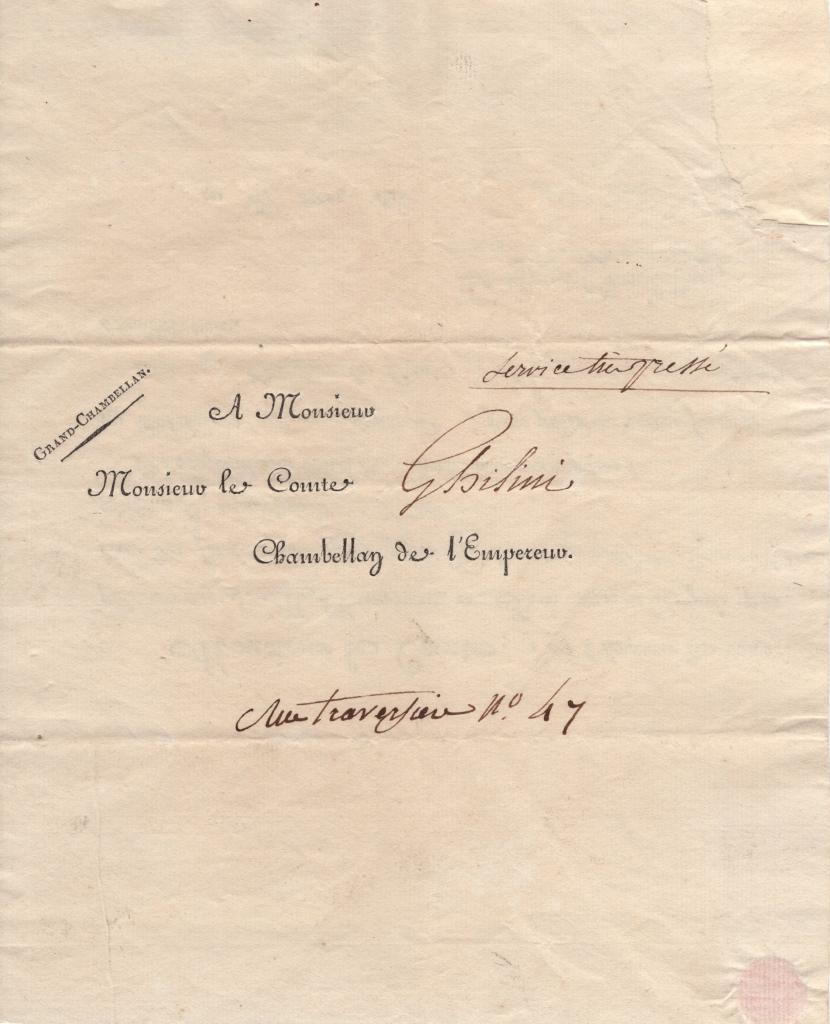 Service très pressé
GRAND-CHAMBELLAN.
A Monsieur
Monsieur le Comte Ghilini
Chambellan de l'Empereur.
Rue traversière n.º 47